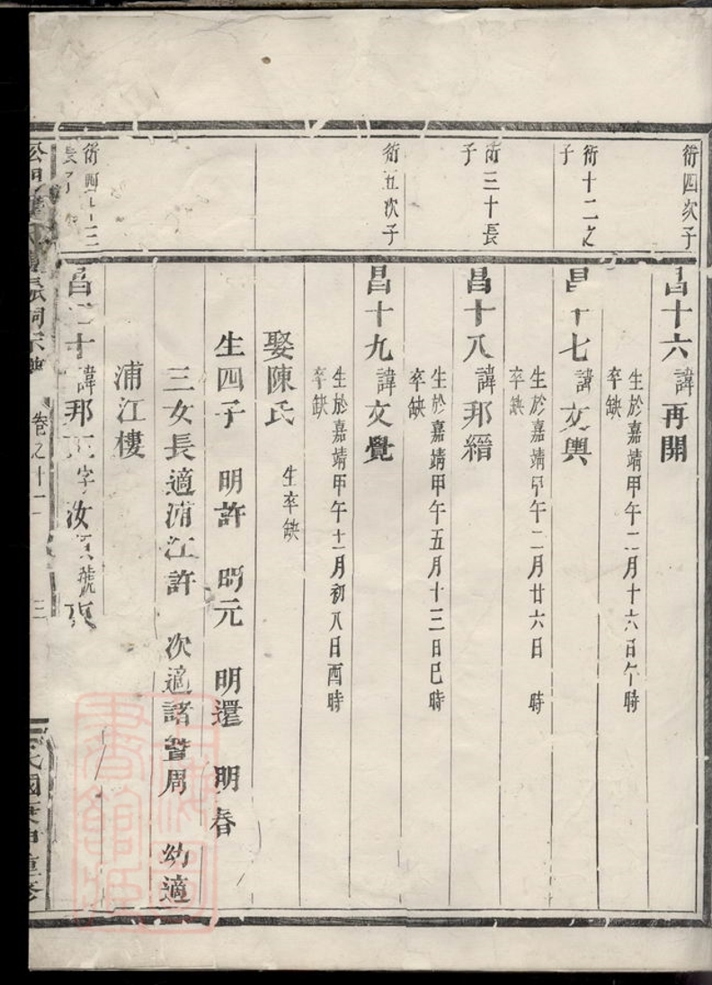 衍四次子
昌十六諱再開
生於嘉靖甲午二月十六日午時
卒缺
衍十二之子
昌十七諱文輿
生於嘉靖甲午二月廿六日 時
卒缺
衍三十長子
昌十八諱邦縉
生於嘉靖甲午五月十三日巳時
卒缺
衍五次子
昌十九諱文覺
生於嘉靖甲午十一月初八日酉時
卒缺
娶陳氏 生卒缺
生四子 明許 明元 明還 明春
三女長適浦江許 次適諸暨周 幼適
浦江樓
昌二十諱邦 字汝 號
卷之十一
三
民國庚申重修